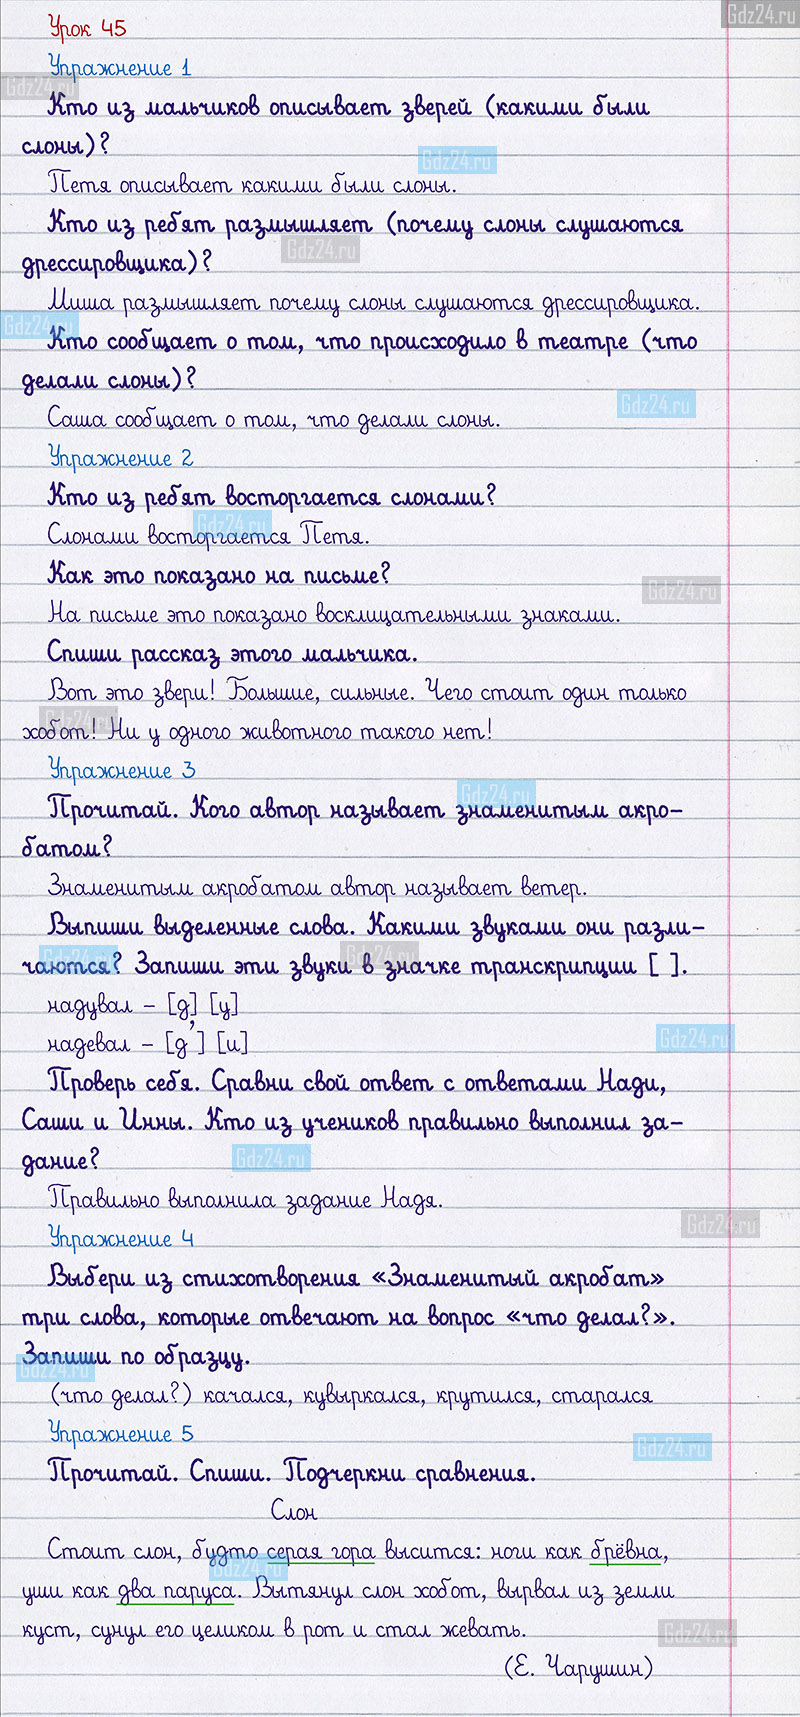 Gdz24.ru
Урок 45
Упражнение 1
Gdz24.ru
Кто из мальчиков описывает зверей (какими были
слоны)?
Gdz24.ru
Петя описывает какими были слоны.
Кто из ребят размышляет (почему слоны слушаются
Gdz24.ru
дрессировщика)?
Миша размышляет почему слоны слушаются дрессировщика.
Gdz24.ru
Кто сообщает о том, что происходило в театре (что
делали слоны)?
Gdz24.ru
Саша сообщает о том, что делали слоны.
Упражнение 2
Кто из ребят восторгается слонами?
Gdz24.ru
Слонами восторгается Петя.
Как это показано на письме?
Gdz24.ru
На письме это показано восклицательными знаками.
Спиши рассказ этого мальчика.
Вот это звери! Большие, сильные. Чего стоит один только
Gdz24.ru
хобот! Ни у одного животного такого нет!
Упражнение 3
Gdz24.ru
Прочитай. Кого автор называет знаменитым акро-
батом?
Знаменитым акробатом автор называет ветер.
Выпиши выделенные слова. Какими звуками они разли-
Gdz24.ru
Gdz24.ru
чаются? Запиши эти звуки в значке транскрипции [ ].
надувал – [д] [у]
надевал – [д'] [и]
Gdz24.ru
Проверь себя. Сравни свой ответ с ответами Нади,
Саши и Инны. Кто из учеников правильно выполнил за-
дание?
Gdz24.ru
Правильно выполнила задание Надя.
Gdz24.ru
Упражнение 4
Выбери из стихотворения «Знаменитый акробат»
три слова, которые отвечают на вопрос «что делал?».
Запиши по образцу.
Gdz24.ru
(что делал?) качался, кувыркался, крутился, старался
Упражнение 5
Gdz24.ru
Прочитай. Спиши. Подчеркни сравнения.
Слон
Стоит слон, будто серая гора высится: ноги как брёвна,
Gdz24.ru
уши как два паруса. Вытянул слон хобот, вырвал из земли
куст, сунул его целиком в рот и стал жевать.
Gdz24.ru
(Е. Чарушин)